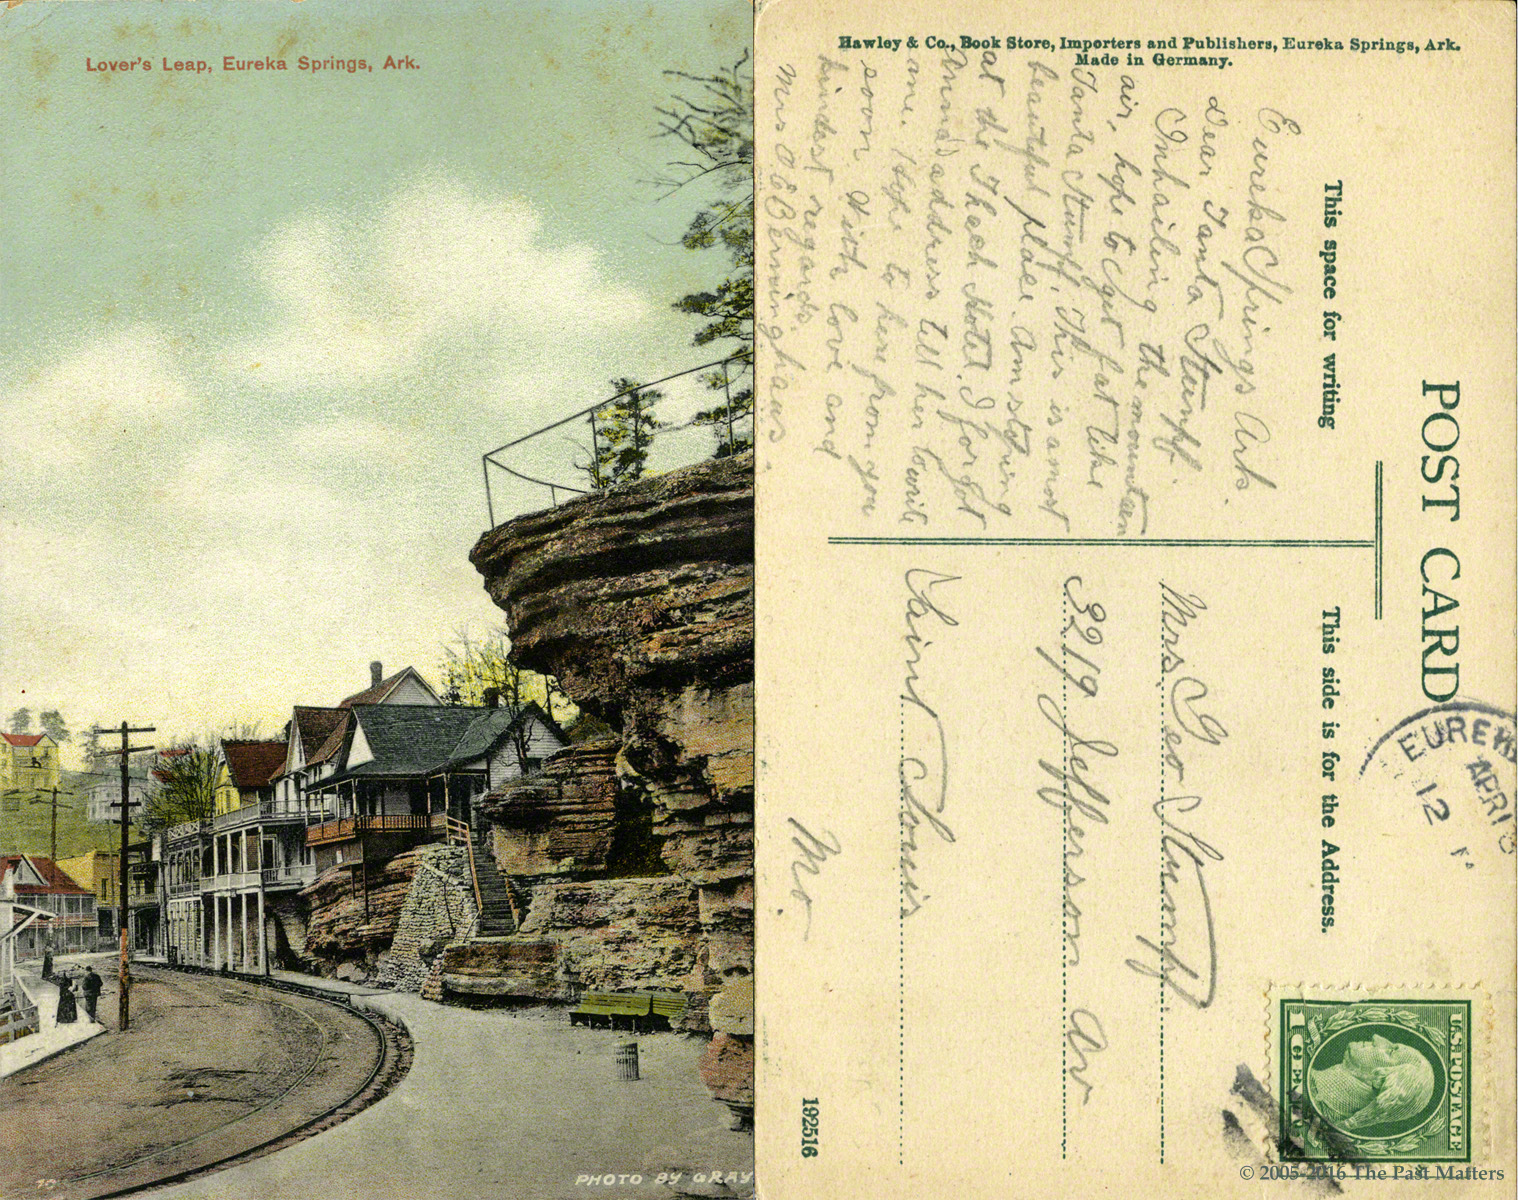 Lover's Leap, Eureka Springs, Ark.
PHOTO BY GRAY
Hawley & Co., Book Store, Importers and Publishers, Eureka Springs, Ark.
Made in Germany.
POST CARD
This space for writing
Eureka Springs Ark.
Dear Tanta Stumpf.
Inhailing the mountian
air, hope to get fat like
Tanta Stumpf. This is a most
beautiful place. Am stoping
at the Thach Hotel. I forgot
Anna's address tell her to write
me. Hope to here from you
soon With love and
kindest regards.
Mrs O E Berninghaus.
This side is for the Address.
Mrs. Geo Stumpf.
3219 Jefferson Av
Saint Louis
Mo.
EUREK
APR 13
12
U.S. POSTAGE
1 CENT
192516
© 2005-2016 The Past Matters